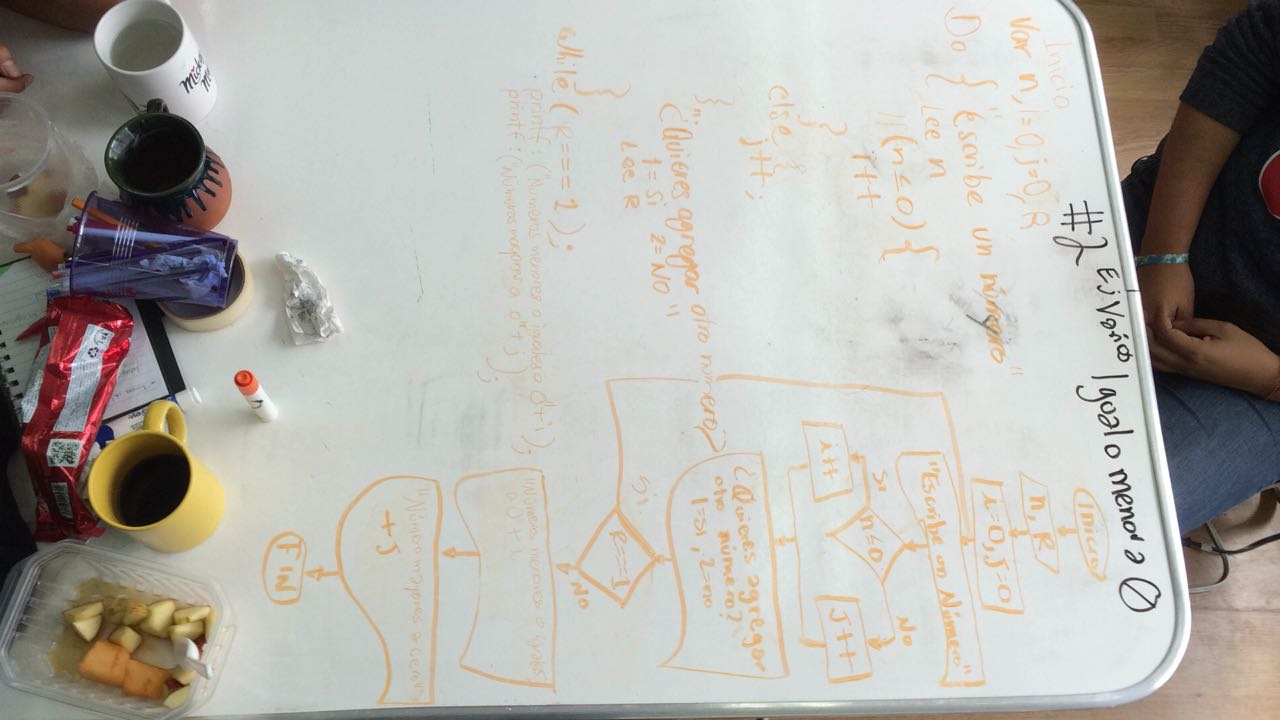 #2 Ej Varios Igual o menor a 0
Inicio
var n, i=0, j=0, R
Do { "Escribe un número"
Lee n
(n ≤ 0) {
i++
}
else {
j++;
}
"¿Quieres agregar otro número?
1=Si 2=NO"
Lee R
}
while (R == 1);
printf: ("Numeros menores o iguales a 0"+i);
printf: (Numeros mayores a 0"+j);
Inicio
n, R
i=0, j=0
"Escribe un Número"
n≤0
Si
No
i++
J++
¿Quieres agregar
otro número?
1=si, 2=no
R==1
Si
No
"Numeros menores o iguales
a 0"+i
"Numeros mayores a cero"
+J
FIN
Mickey